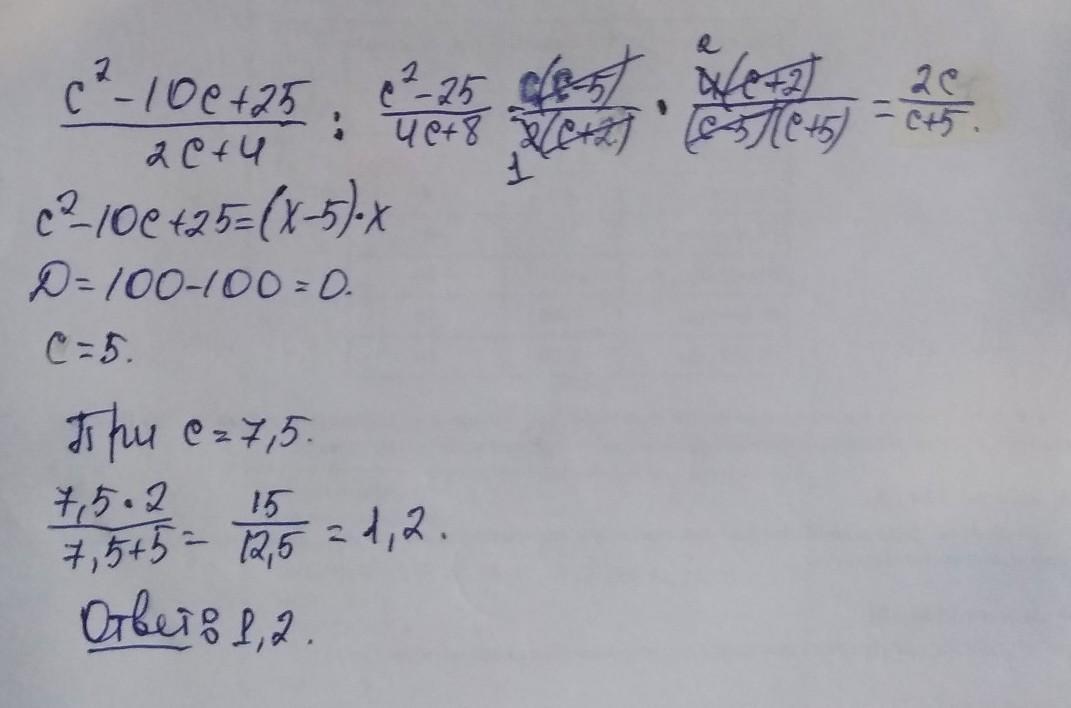 c² - 10c + 25 / 2c + 4 : c² - 25 / 4c + 8 c(c - 5) / 2(c + 2) 1 · 2 4(c + 2) / (c - 5)(c + 5) = 2c / c + 5.
c² - 10c + 25 = (x - 5)·x
D = 100 - 100 = 0.
c = 5.
При c = 7,5.
7,5 · 2 / 7,5 + 5 = 15 / 12,5 = 1,2.
Ответ: 1,2.